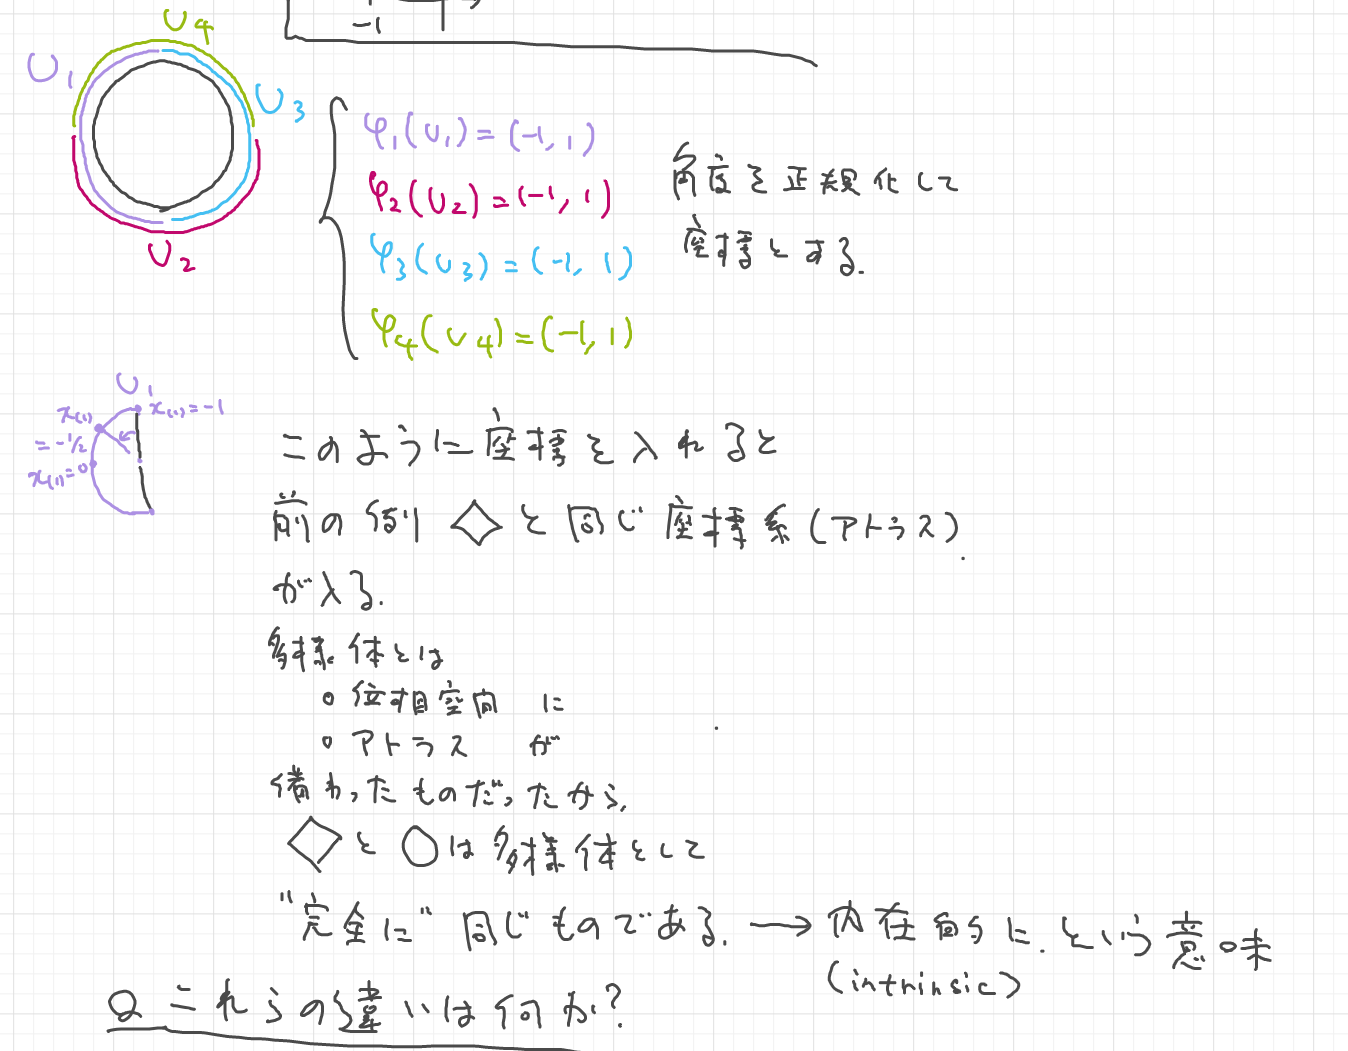 -1
U4
U1
U3
U2
φ1(U1)=(-1,1)
φ2(U2)=(-1,1)
φ3(U3)=(-1,1)
φ4(U4)=(-1,1)
角度を正規化して
座標とする.
U1
x(1)=-1
x(1)
=-1/2
x(1)=0
このように座標を入れると
前の例 ◇ と同じ座標系(アトラス)
が入る.
多様体とは
○ 位相空間 に
○ アトラス が
備わったものだったから,
◇と○は多様体として
"完全に" 同じものである. → 内在的に.という意味
(intrinsic)
Q これらの違いは何か?